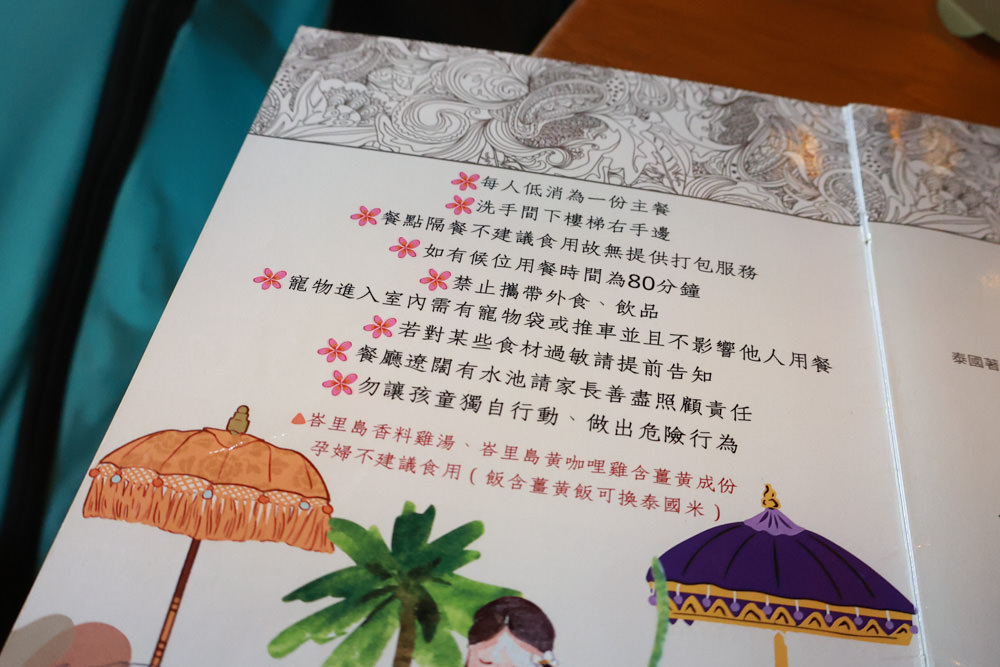 每人低消為一份主餐
洗手間下樓梯右手邊
餐點隔餐不建議食用故無提供打包服務
如有候位用餐時間為80分鐘
禁止攜帶外食、飲品
寵物進入室內需有寵物袋或推車並且不影響他人用餐
若對某些食材過敏請提前告知
餐廳遼闊有水池請家長善盡照顧責任
勿讓孩童獨自行動、做出危險行為
峇里島香料雞湯、峇里島黃咖哩雞含薑黃成份
孕婦不建議食用（飯含薑黃飯可換泰國米）
泰國著